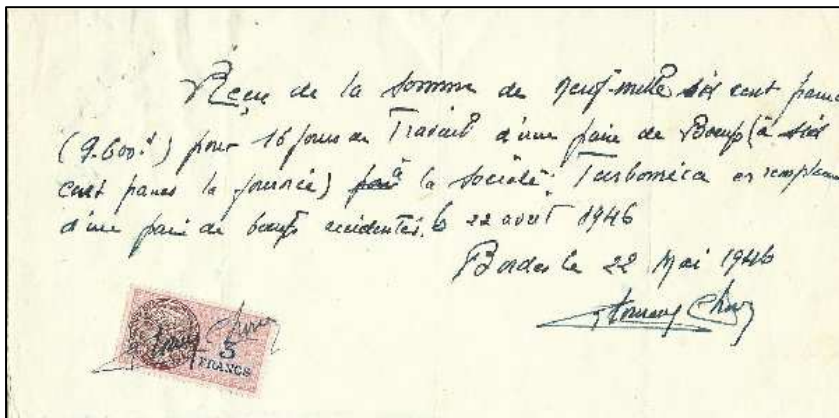 Reçu de la somme de neuf mille six cent francs
(9.600 f) pour 16 jours de Travail d'une paire de Boeufs (à six
cent francs la journée) à la Société Turboméca en remplacement
d'une paire de boeufs accidentés, le 22 avril 1946
Bordes le 22 Mai 1946
5
FRANCS